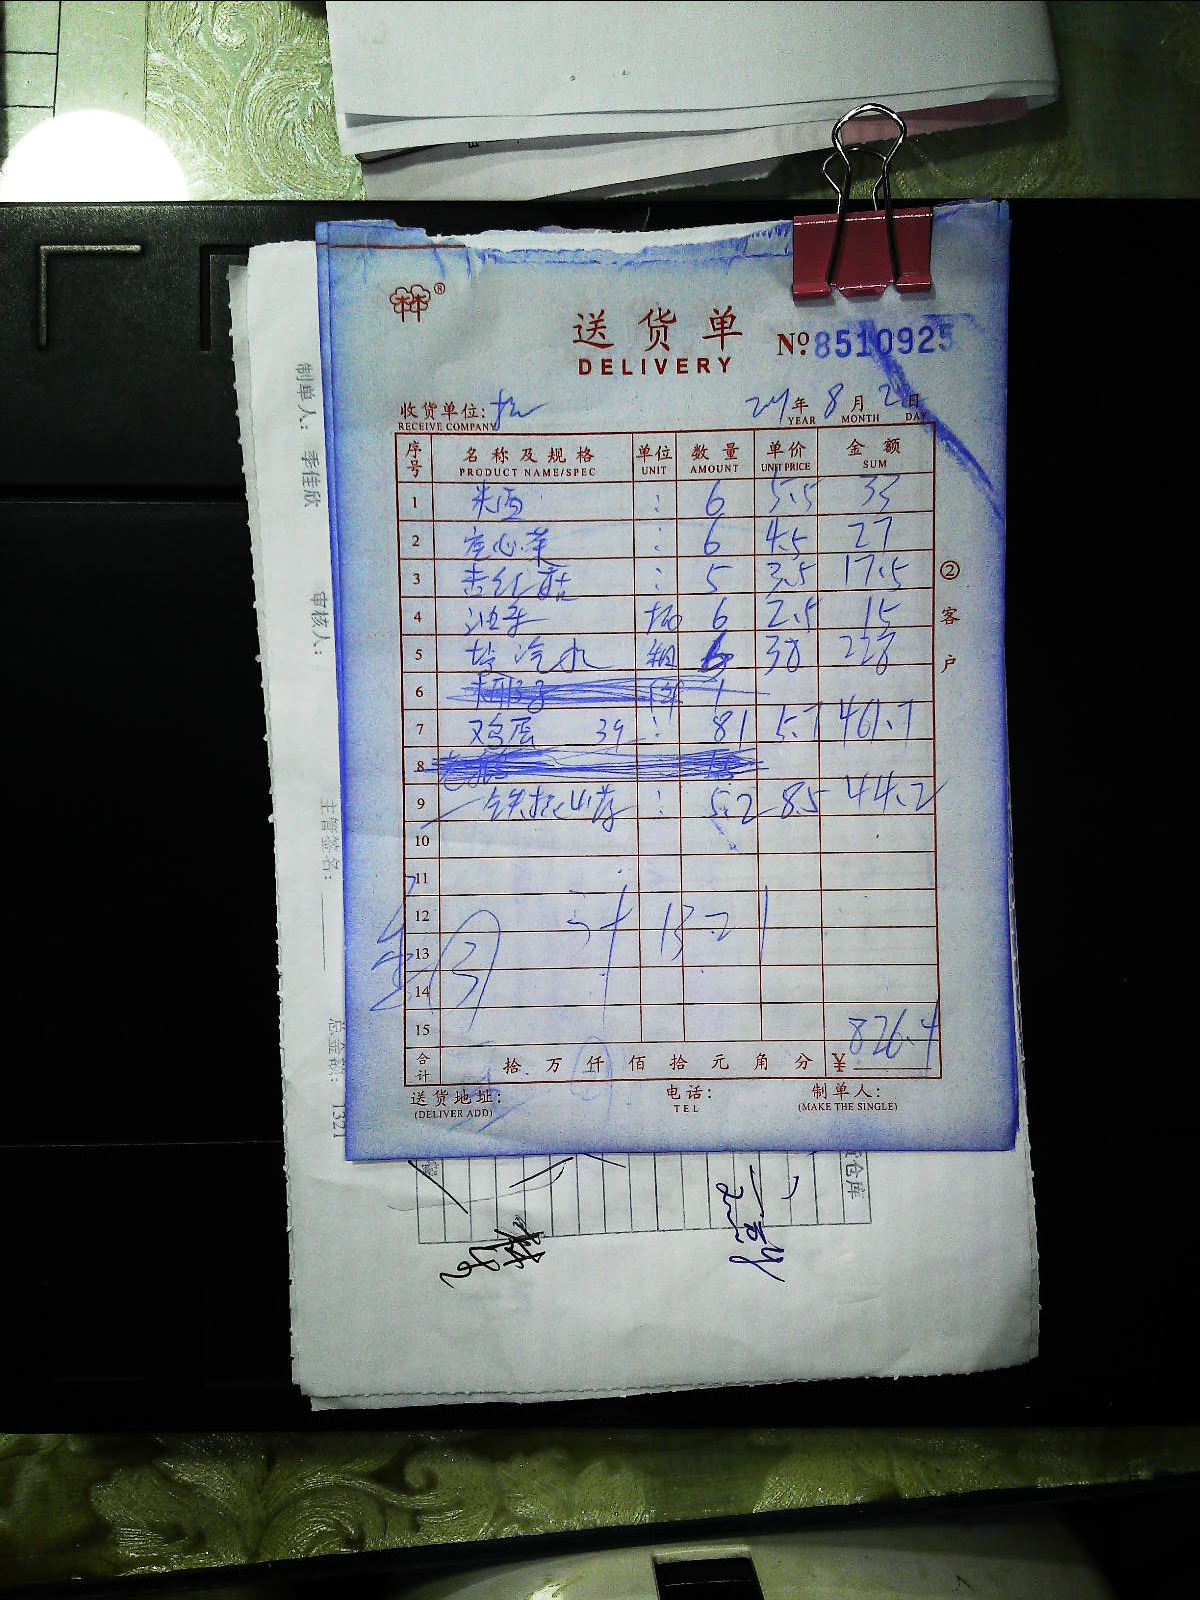 ®
送货单
DELIVERY
Nº 8510925
收货单位:
RECEIVE COMPANY
年 8 月 日
YEAR MONTH DAY
序号 名称及规格 单位 数量 单价 金额
PRODUCT NAME/SPEC UNIT AMOUNT UNIT PRICE SUM
1 6 5.5 33
2 空心菜 : 6 4.5 27
3 杏红菇 : 5 3.5 17.5
4 油麦 6 2.5 15
5 汽水 箱 6 38 228
6 1
7 鸡蛋 39 : 81 5.7 461.7
8
9 铁棍山药 : 5.2 8.5 44.2
10
11
12
13
14
15 826.4
合计 拾 万 仟 佰 拾 元 角 分 ¥
送货地址:
(DELIVER ADD)
电话:
TEL
制单人:
(MAKE THE SINGLE)
②客户
计 1321
制单人: 季佳欣
审核人:
主管签名:
总金额: 1321
仓库